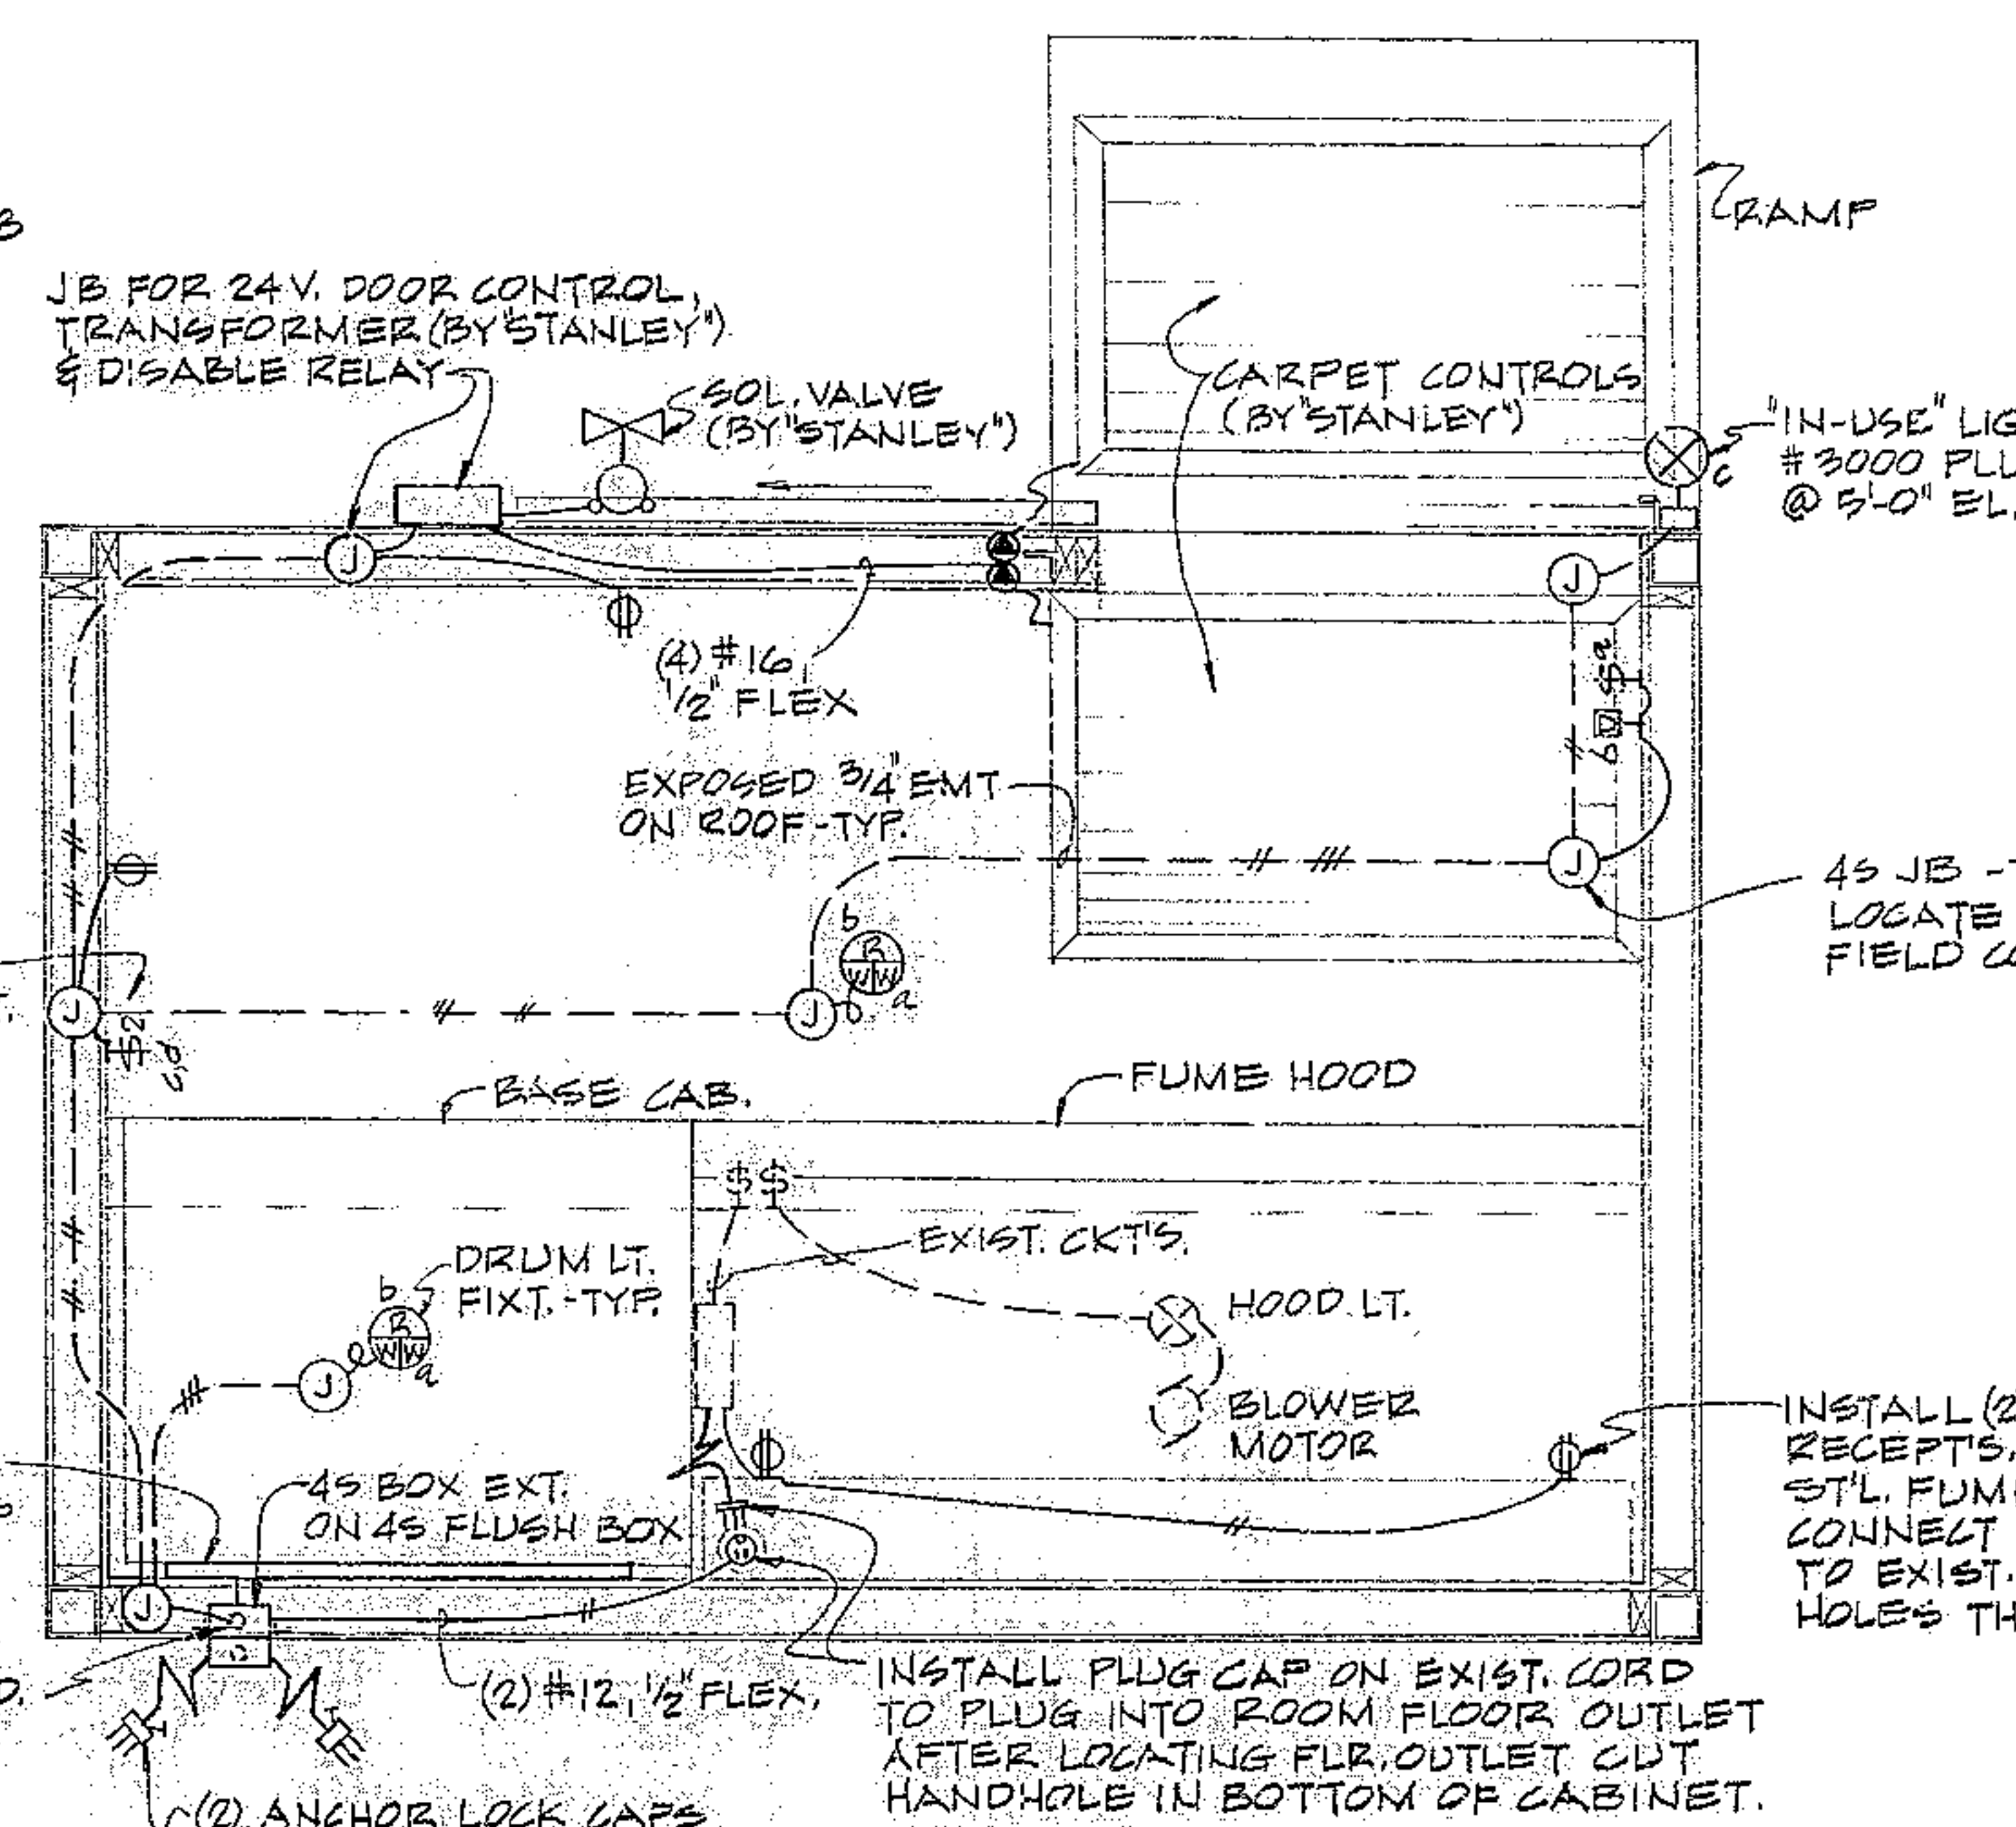 B
JB FOR 24V. DOOR CONTROL,
TRANSFORMER (BY "STANLEY")
& DISABLE RELAY
SOL. VALVE
(BY "STANLEY")
RAMP
CARPET CONTROLS
(BY "STANLEY")
"IN-USE" LIG
#3000 PLU
@ 5'-0" EL.
c
J
J
(4) #16
1/2" FLEX
$a
b
EXPOSED 3/4" EMT
ON ROOF-TYP.
J
4S JB -T
LOCATE
FIELD CO
b
R
W W
a
J
J
$2
c,d
BASE CAB.
FUME HOOD
$ $
EXIST. CKT'S.
DRUM LT.
FIXT. -TYP.
b
R
W W
a
J
HOOD LT.
BLOWER
MOTOR
INSTALL (2
RECEPT'S.
ST'L. FUM
CONNECT
TO EXIST.
HOLES TH
4S BOX EXT.
ON 4S FLUSH BOX
S
J
D.
(2) #12, 1/2" FLEX,
INSTALL PLUG CAP ON EXIST. CORD
TO PLUG INTO ROOM FLOOR OUTLET
AFTER LOCATING FLR. OUTLET CUT
HANDHOLE IN BOTTOM OF CABINET.
(2) ANCHOR LOCK CAPS